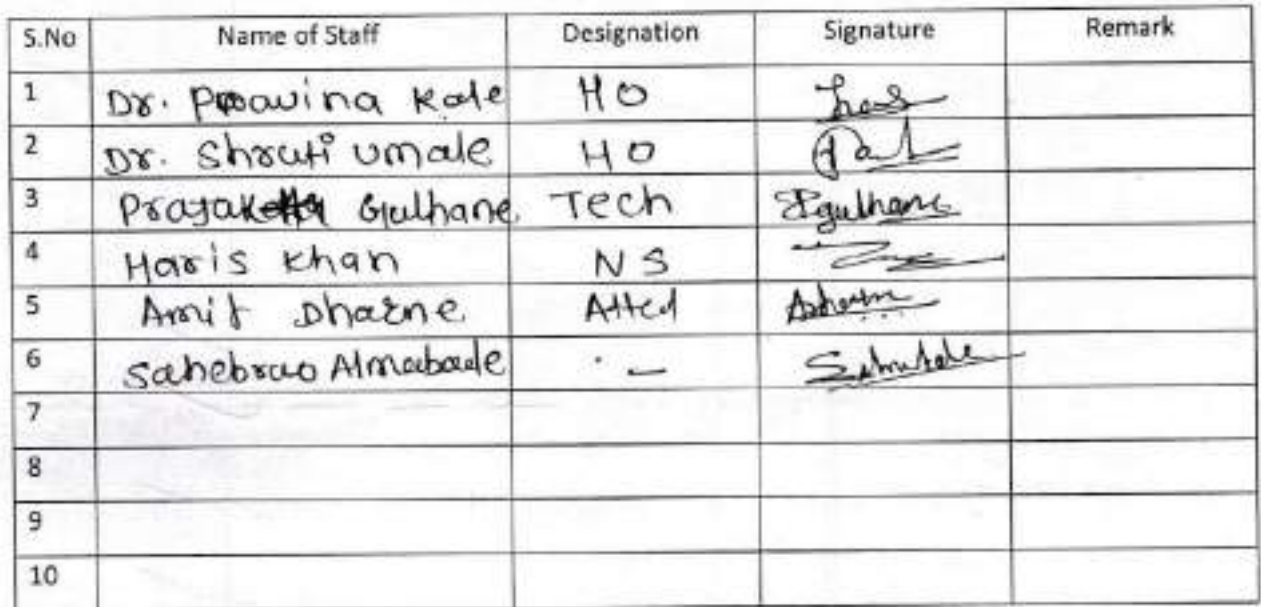 S.No Name of Staff Designation Signature Remark
1 Dr. Pravina Kale HO
2 Dr. Shruti Umale HO
3 Prajakta Gulhane Tech Pgulhane
4 Haris Khan NS
5 Amit Dharne Atted
6 Sahebrao Almabade -
7
8
9
10